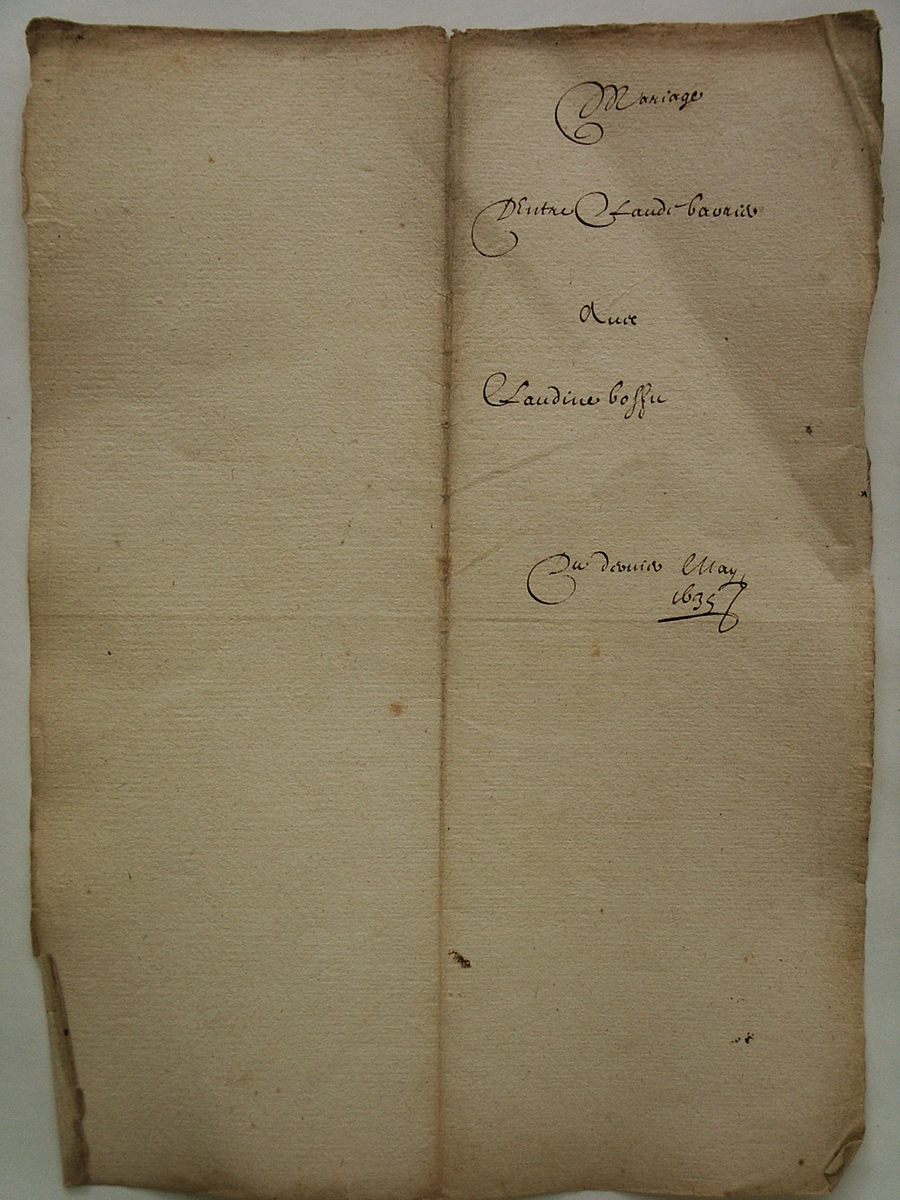 Mariage
D'Entre Claude
Auec
Claudine bossu
Du dernier May
1635